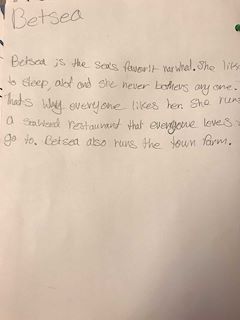 Betsea
Betsea is the sea's favorit narwhal. She lik
to sleep, alot and she never bothers any one.
thats why everyone likes her. She runs
a seaweed restaurant that everyone loves
go to. Betsea also runs the town farm.